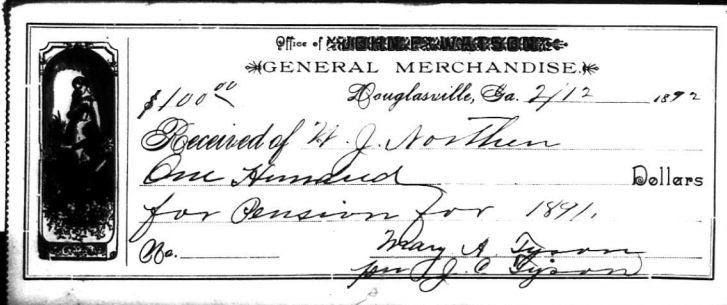 Office of JOHN P. WATSON
GENERAL MERCHANDISE.
$100 00 Douglasville, Ga. 2/12 1892
Received of W. J. Northen
One Hundred Dollars
for Pension for 1891.
No. Mary A. Tyson
per J. C. Tyson